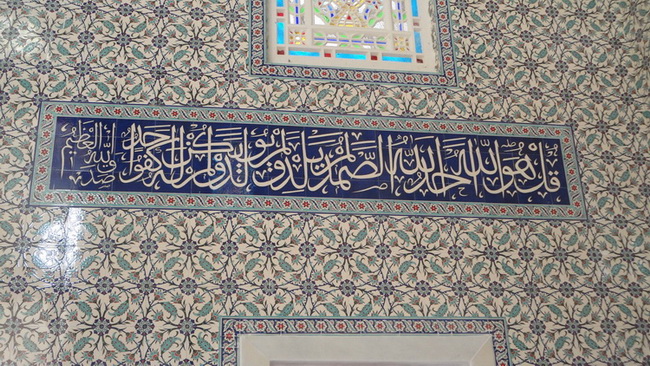 قل هو الله احد الله الصمد لم يلد ولم يولد ولم يكن له كفوا احد صدق الله العظيم